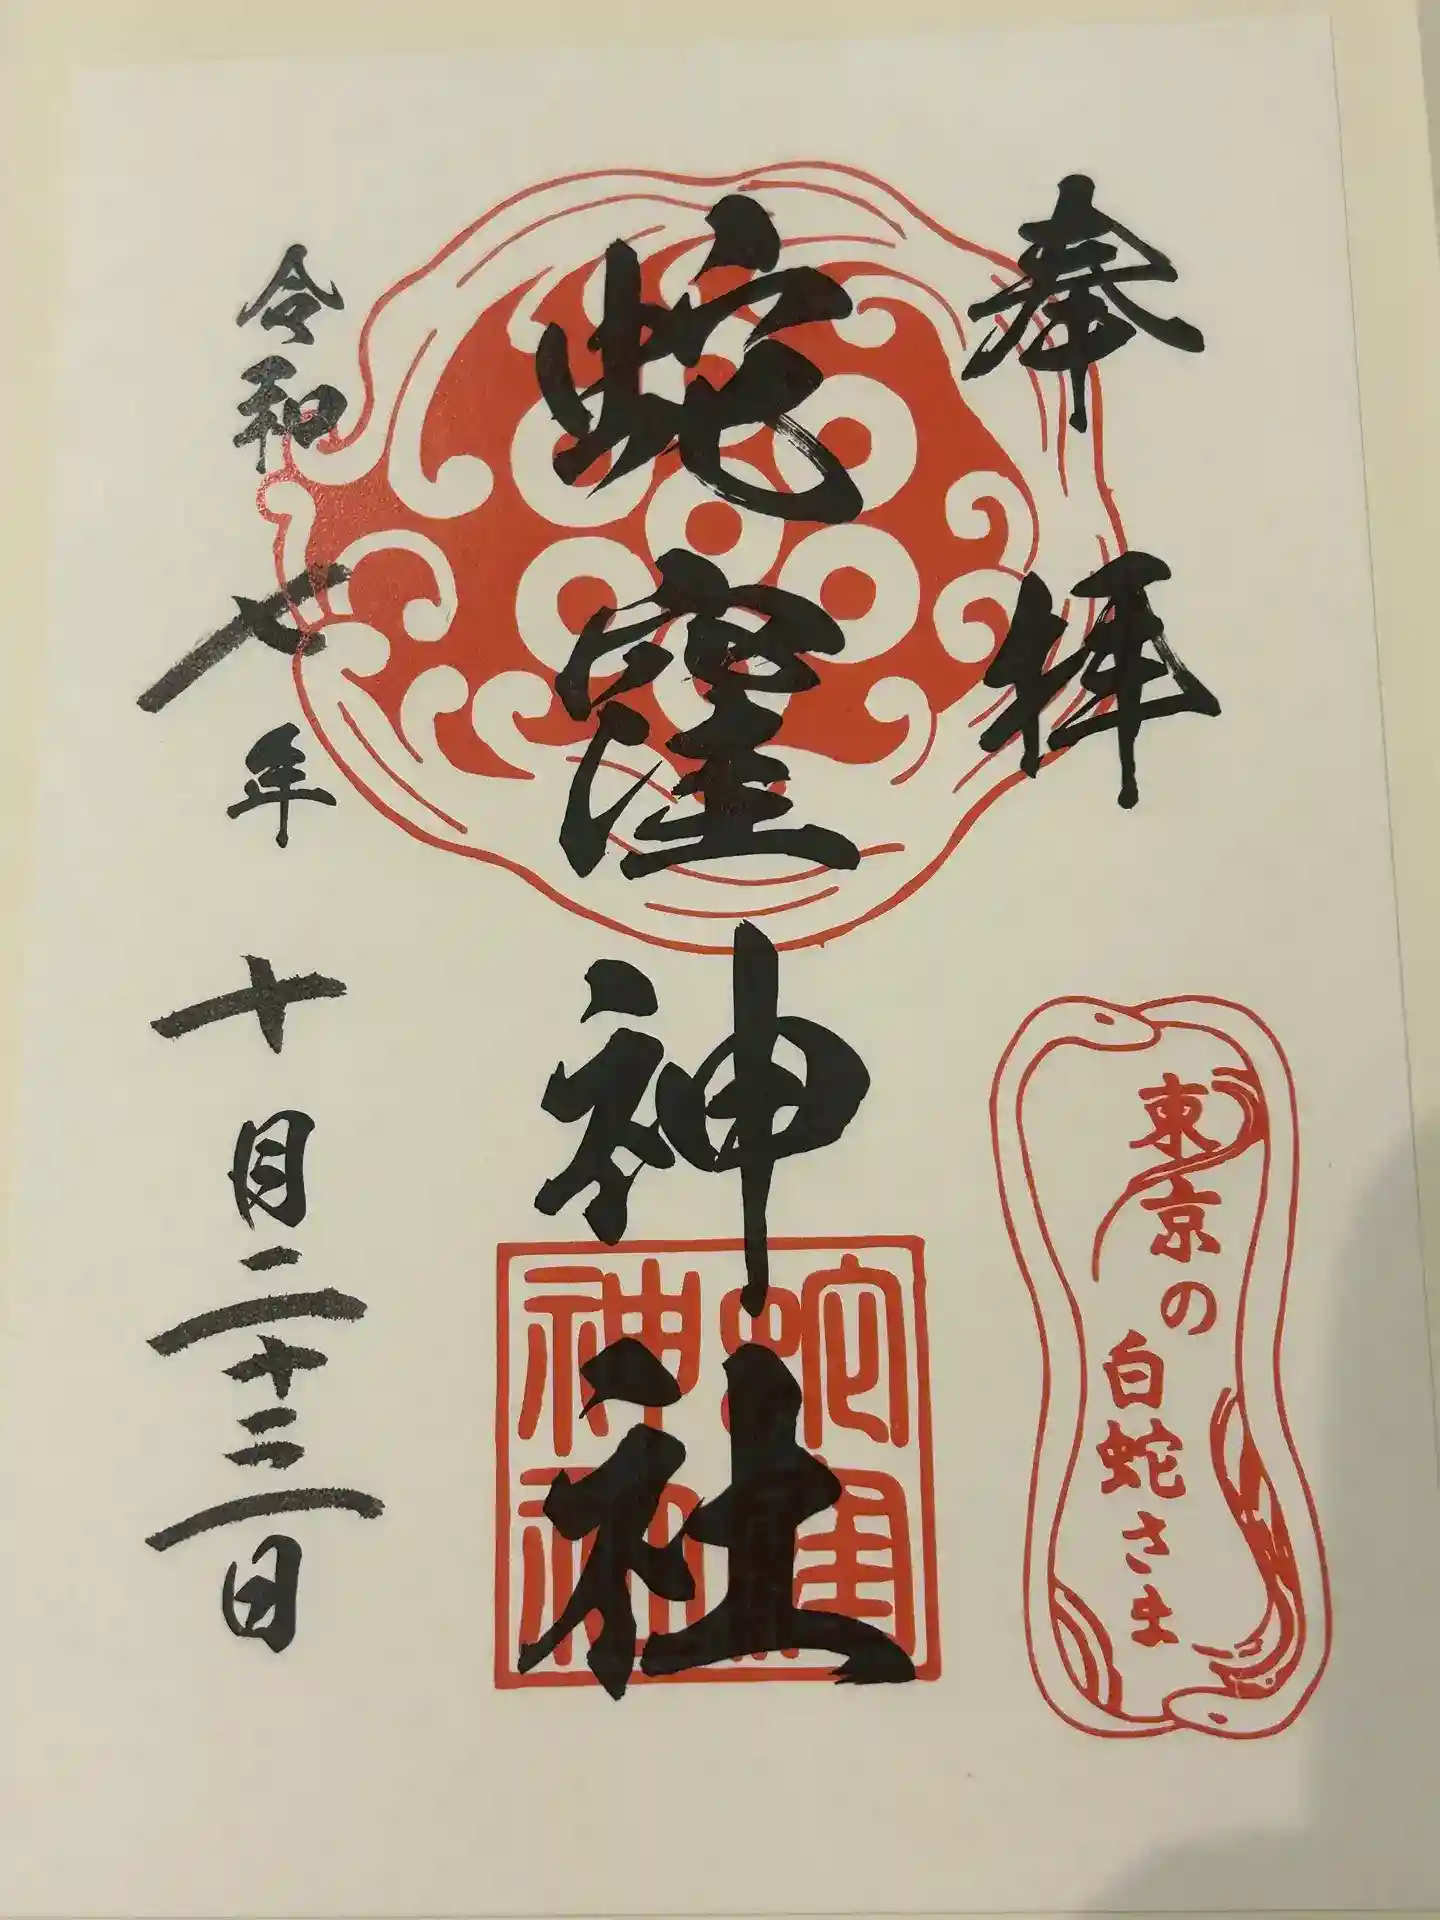 奉拝
東京の
白蛇さま
蛇窪神社
蛇窪
神社
令和七年十月二十三日